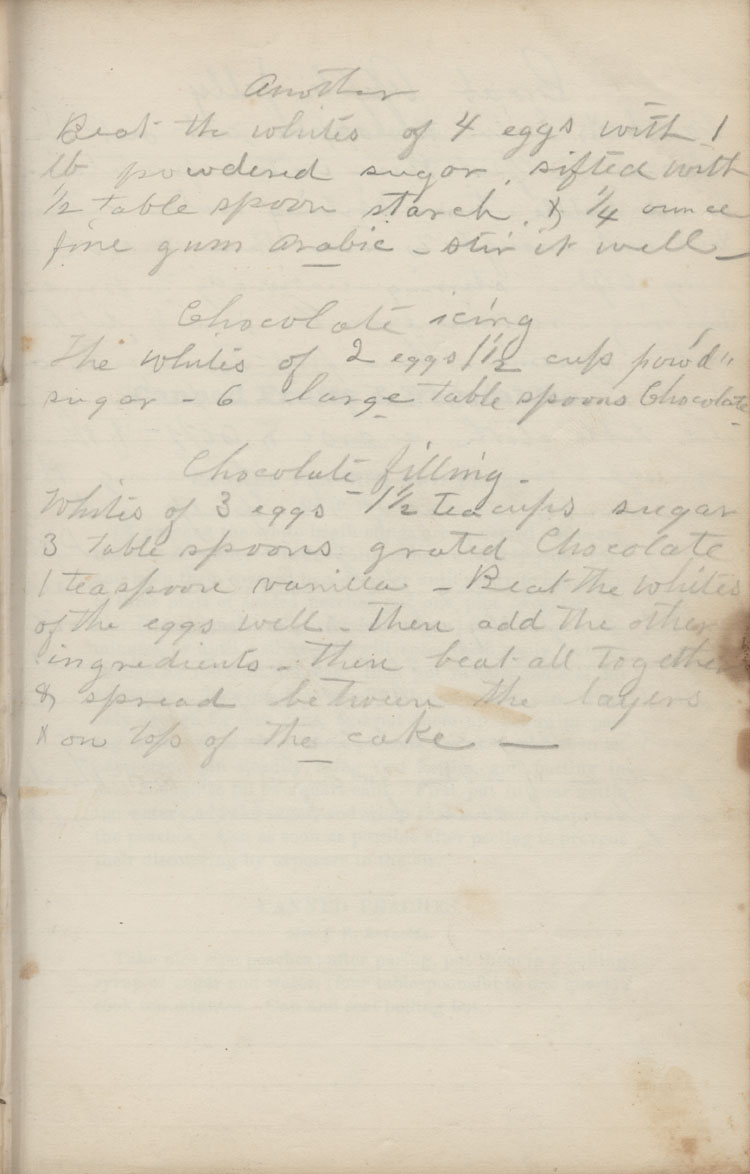 Another
Beat the whites of 4 eggs with 1
lb powdered sugar, sifted with
½ table spoon starch, & ¼ ounce
fine gum arabic - stir it well -
Chocolate icing
The whites of 2 eggs 1½ cups pow'd"
sugar - 6 large table spoons Chocolate
Chocolate filling -
Whites of 3 eggs - 1½ tea cups sugar
3 table spoons grated Chocolate
1 teaspoon vanilla - Beat the whites
of the eggs well - then add the other
ingredients - then beat all together
& spread between the layers
& on top of the cake -
CANNED PEACHES